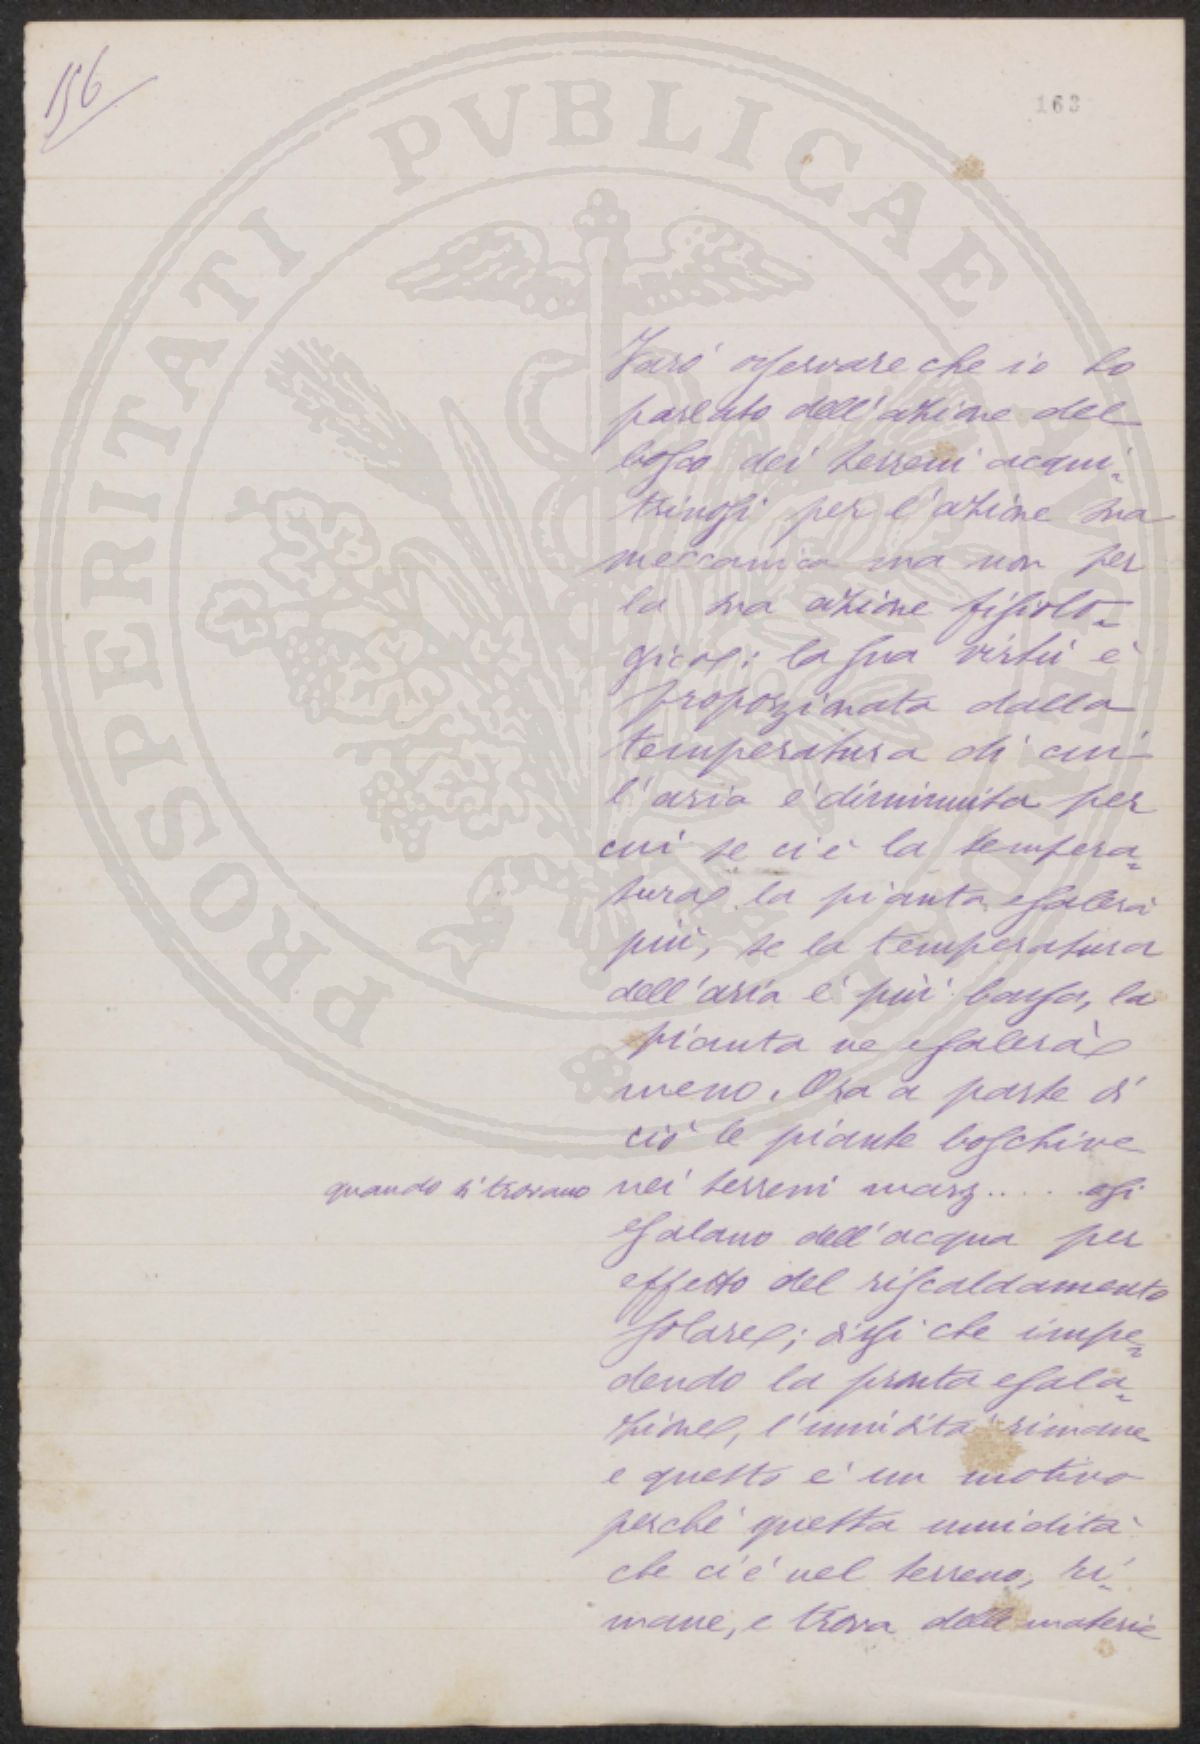 156
163
PROSPERITATI PVBLICAE
Farò osservare che io ho
parlato dell'azione del
bosco dei terreni acqui-
trinosi per l'azione sua
meccanica ma non per
la sua azione fisiolo-
gica: la sua virtù è
proporzionata dalla
temperatura di cui
l'aria è diminuita per
cui se ci è la tempera-
tura la pianta esalerà
più, se la temperatura
dell'aria è più bassa, la
pianta ne esalerà
meno. Ora a parte di
ciò le piante boschive
quando si trovano nei terreni marz..... essi
esalano dell'acqua per
effetto del riscaldamento
solare; dissi che impe-
dendo la pronta esala-
zione, l'umidità rimane
e questo è un motivo
perché questa umidità
che ci è nel terreno, ri-
mane, e trova delle materie